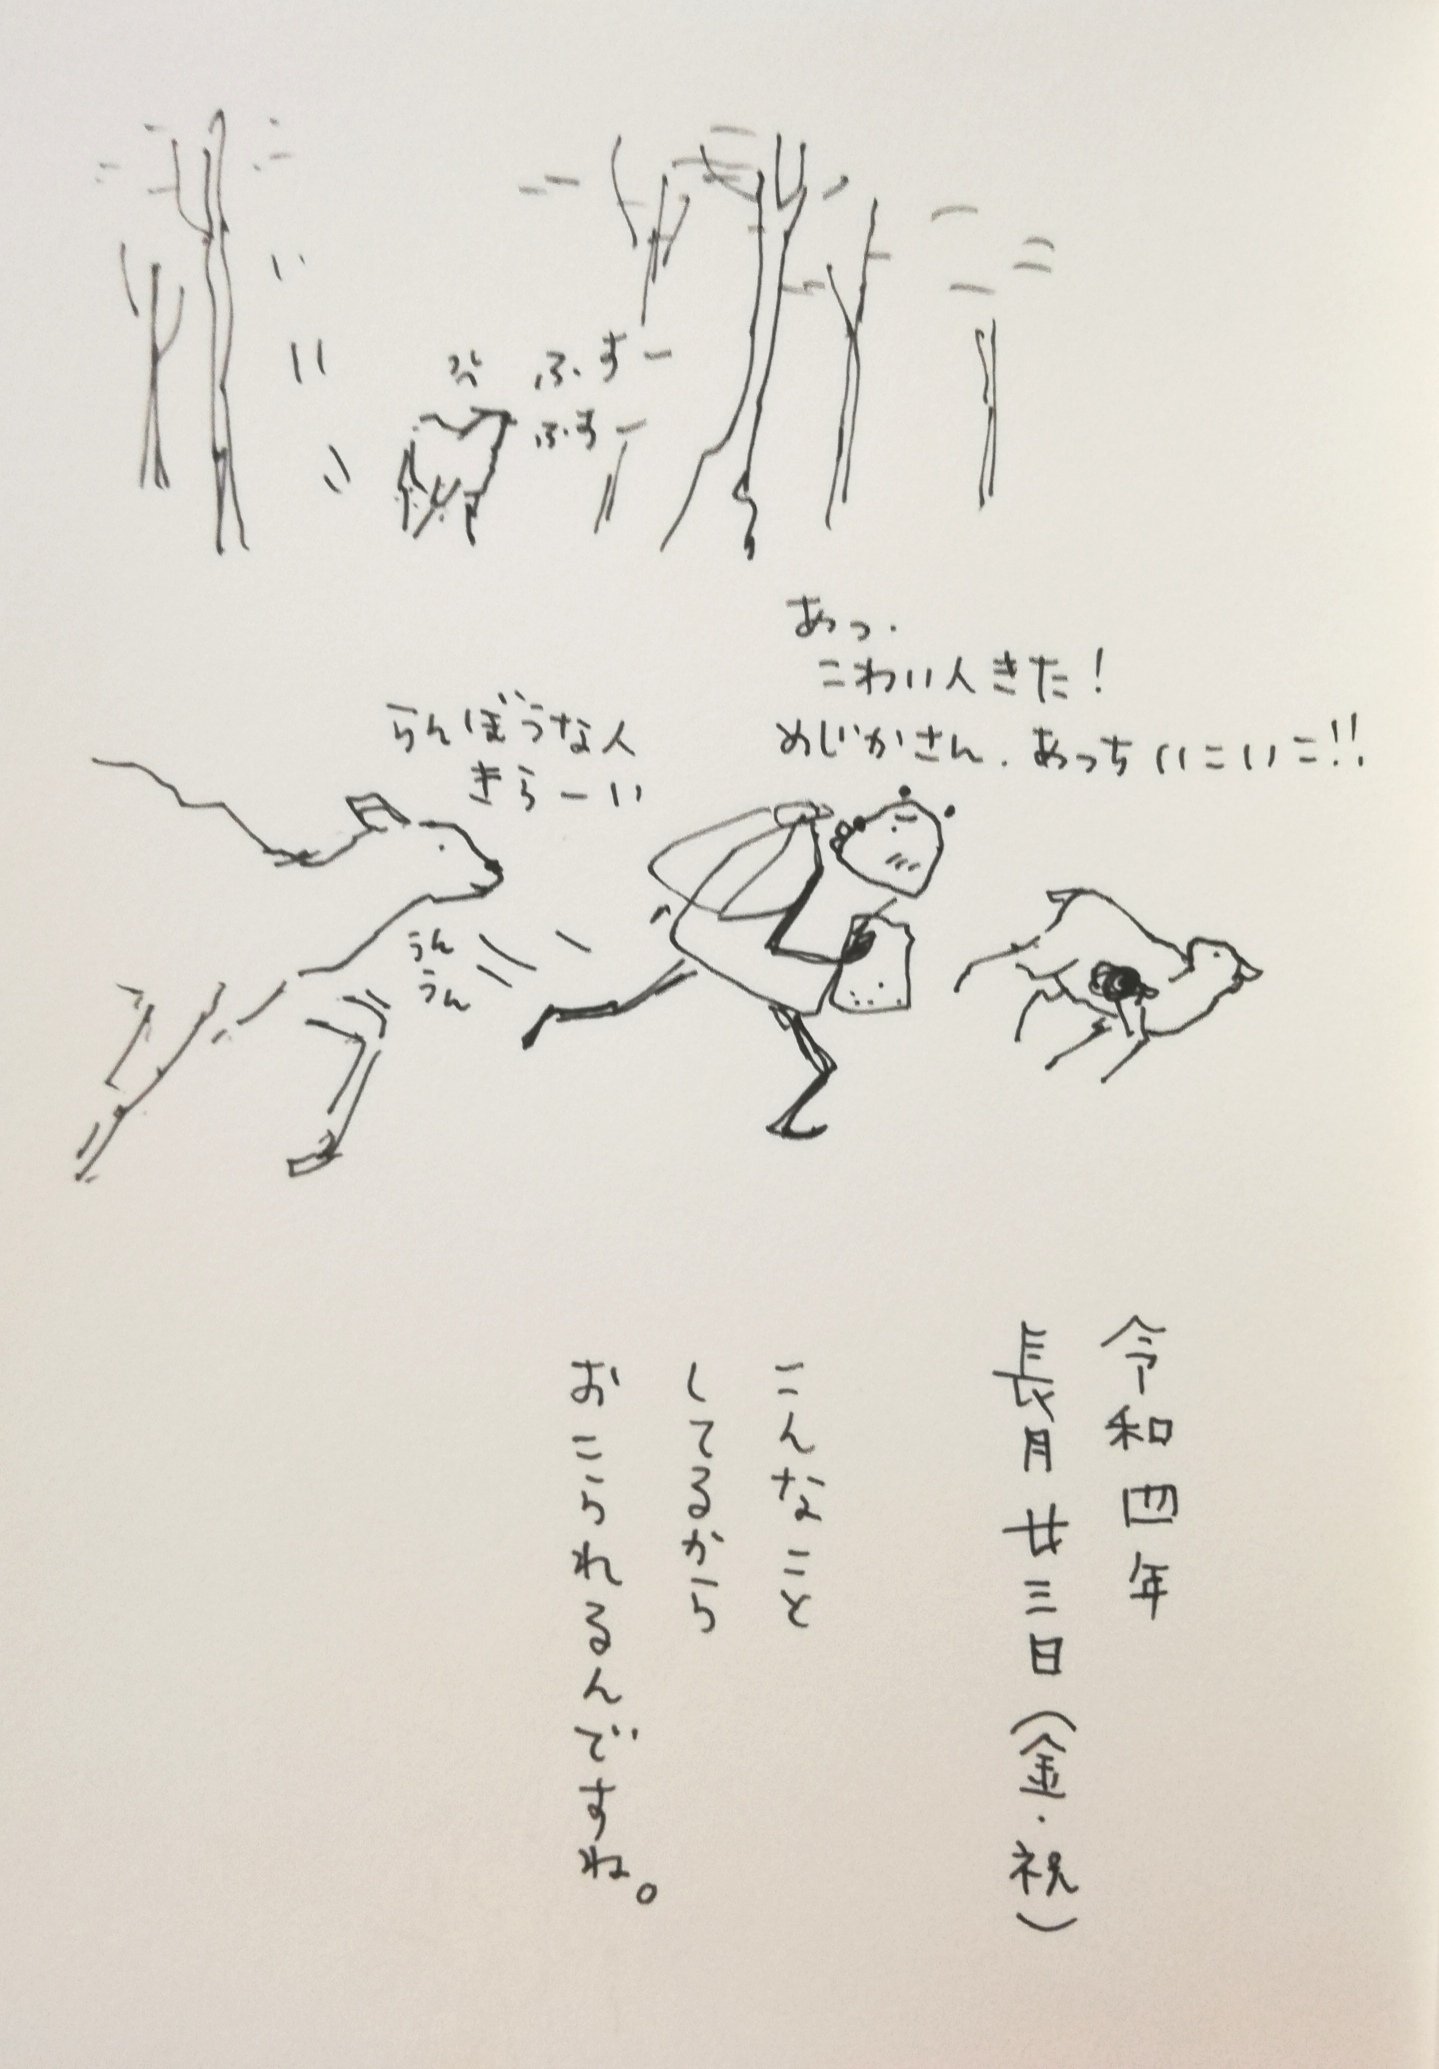 ふすー
ふすー
あっ.
こわい人きた!
めじかさん.あっちいこいこ!!
らんぼうな人
きらーい
うん
うん
令和四年
長月廿三日(金・祝)
こんなこと
してるから
おこられるんですね。